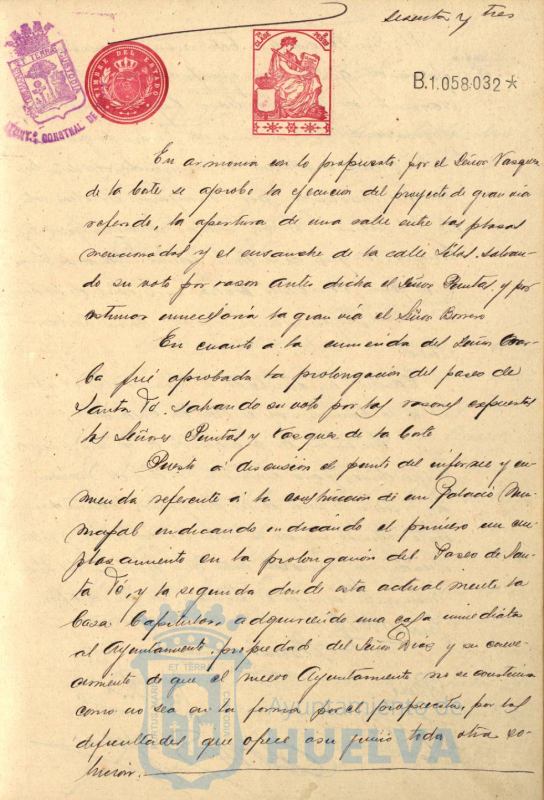 sesenta y tres
PORTUS MARIS ET TERRÆ CUSTODIA
AYUNT.º CONSTNAL DE
TIMBRE DEL ESTADO
CLASE
B.1.058.032*
En armonia con lo propuesto por el Señor Vasquez
de la Corte se aprobo la ejecucion del proyecto de gran via
referido, la apertura de una calle entre las plasas
mencionadas y el ensanche de la calle Silos, salvan-
do su voto por rason antes dicha el Señor Puntas, y por
estimar innecesaria la gran via el Señor Borrero
En cuanto a la enmienda del Señor
ba fué aprobada la prolongacion del paseo de
Santa Fé, salvando su voto por las rasones expuestas
los Señores Puntas y Vasquez de la Corte
Puesto á discusion el punto del informe y en-
mienda referente á la construccion de un Palacio Mu-
nicipal indicando el primero un em-
plasamiento en la prolongacion del Paseo de San-
ta Fé, y la segunda donde esta actualmente la
Casa Capitular adquiriendo una casa inmediata
al Ayuntamiento, propiedad del Señor Diaz y su conven-
cimiento de que el nuevo Ayuntamiento no se construira
como no sea en la forma por el propuesta, por las
dificultades que ofrece a su juicio toda otra so-
lucion.
PORTUS MARIS ET TERRÆ CUSTODIA
Ayuntamiento de
HUELVA